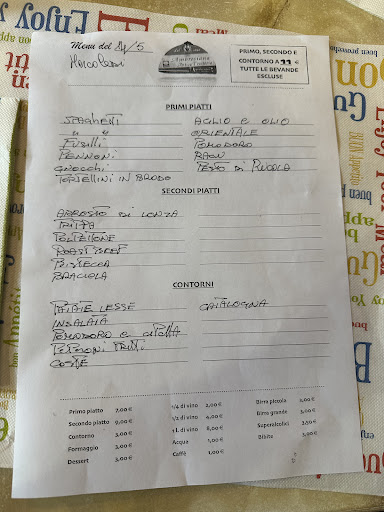 Menù del 24/5
Mercoledì
PRIMO, SECONDO E
CONTORNO A 11 €
TUTTE LE BEVANDE
ESCLUSE
PRIMI PIATTI
SPAGHETTI AGLIO e OLIO
" " ORIENTALE
FUSILLI POMODORO
PENNONI RAGU
GNOCCHI PESTO di RUCOLA
TORTELLINI IN BRODO
SECONDI PIATTI
ARROSTO DI LONZA
TRIPPA
POLPETTONE
ROAST BEEF
BISTECCA
BRACIOLA
CONTORNI
PATATE LESSE CATALOGNA
INSALATA
POMODORO e CIPOLLA
PEPERONI FRITTI
COSTE
Primo piatto 7,00 € 1/4 di vino 2,00 € Birra piccola 2,00 €
Secondo piatto 9,00 € 1/2 di vino 4,00 € Birra grande 3,00 €
Contorno 3,00 € 1 L. di vino 8,00 € Superalcolici 3,50 €
Formaggio 3,00 € Acqua 1,00 € Bibita 3,00 €
Dessert 3,00 € Caffè 1,00 €
Enjoy